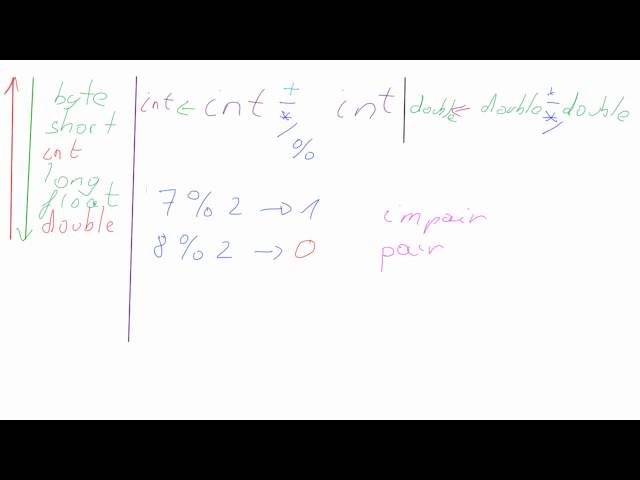 byte
short
int
long
float
double
int ← int + - * / % int
double ⇐ double + - * / double
7 % 2 → 1 impair
8 % 2 → 0 pair